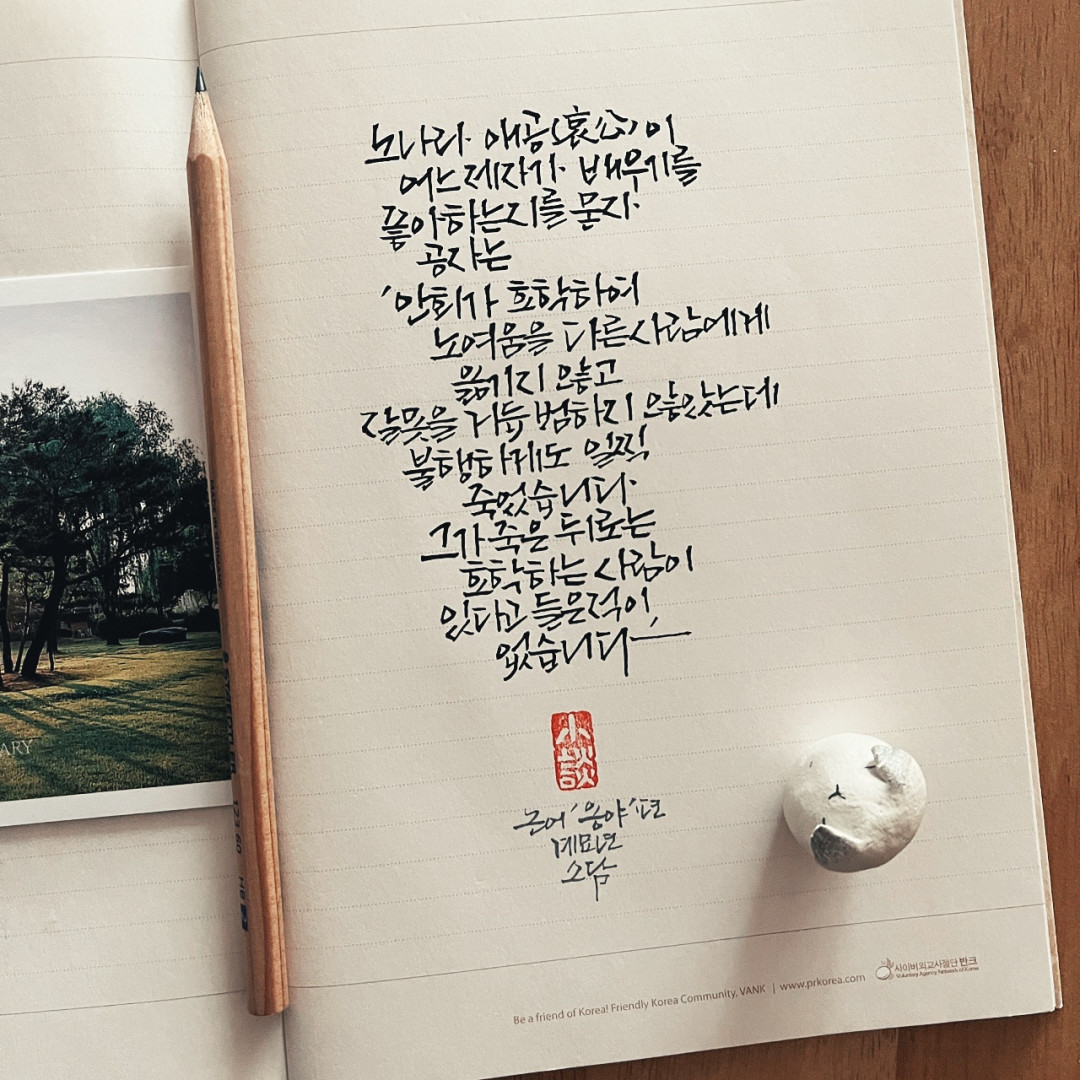 노나라 애공(哀公)이
어느 제자가 배우기를
좋아하는지를 묻자
공자는
'안회가 호학하여
노여움을 다른 사람에게
옮기지 않고
잘못을 거듭 범하지 않았는데
불행하게도 일찍
죽었습니다.
그가 죽은 뒤로는
호학하는 사람이
있다고 들은 적이
없습니다'
小談
논어 '옹야'편
계묘년
소담
ARY
HB
사이버외교사절단 반크
Voluntary Agency Network of Korea
Be a friend of Korea! Friendly Korea Community, VANK | www.prkorea.com